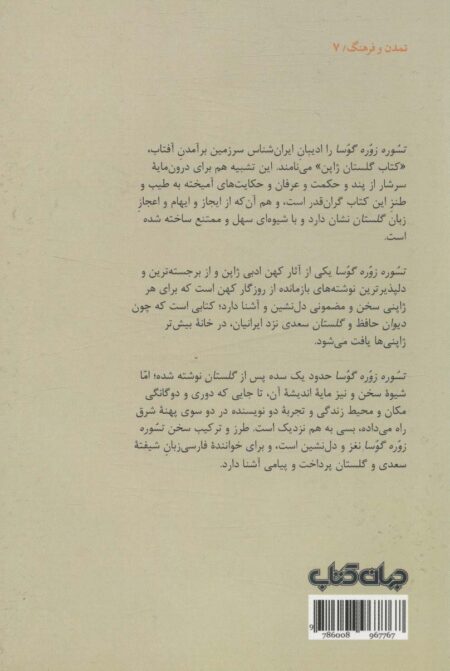 تمدن و فرهنگ/ ۷
تسُوره زوُره گوُسا را ادیبانِ ایران‌شناس سرزمین برآمدن آفتاب،
«کتاب گلستان ژاپن» می‌نامند. این تشبیه هم برای درون‌مایهٔ
سرشار از پند و حکمت و عرفان و حکایت‌های آمیخته به طیب و
طنز این کتاب گران‌قدر است، و هم آن‌که از ایجاز و ایهام و اعجازِ
زبان گلستان نشان دارد و با شیوه‌ای سهل و ممتنع ساخته شده
است.
تسُوره زوُره گوُسا یکی از آثار کهن ادبی ژاپن و از برجسته‌ترین و
دلپذیرترین نوشته‌های بازمانده از روزگار کهن است که برای هر
ژاپنی سخن و مضمونی دل‌نشین و آشنا دارد؛ کتابی است که چون
دیوان حافظ و گلستان سعدی نزد ایرانیان، در خانهٔ بیش‌تر
ژاپنی‌ها یافت می‌شود.
تسُوره زوُره گوُسا حدود یک سده پس از گلستان نوشته شده؛ امّا
شیوهٔ سخن و نیز مایهٔ اندیشهٔ آن، تا جایی که دوری و دوگانگی
مکان و محیط زندگی و تجربهٔ دو نویسنده در دو سوی پهنهٔ شرق
راه می‌داده، بسی به هم نزدیک است. طرز و ترکیب سخن تسُوره
زوُره گوُسا نغز و دل‌نشین است، و برای خوانندهٔ فارسی‌زبانِ شیفتهٔ
سعدی و گلستان پرداخت و پیامی آشنا دارد.
جهان کتاب
9 786008 967767